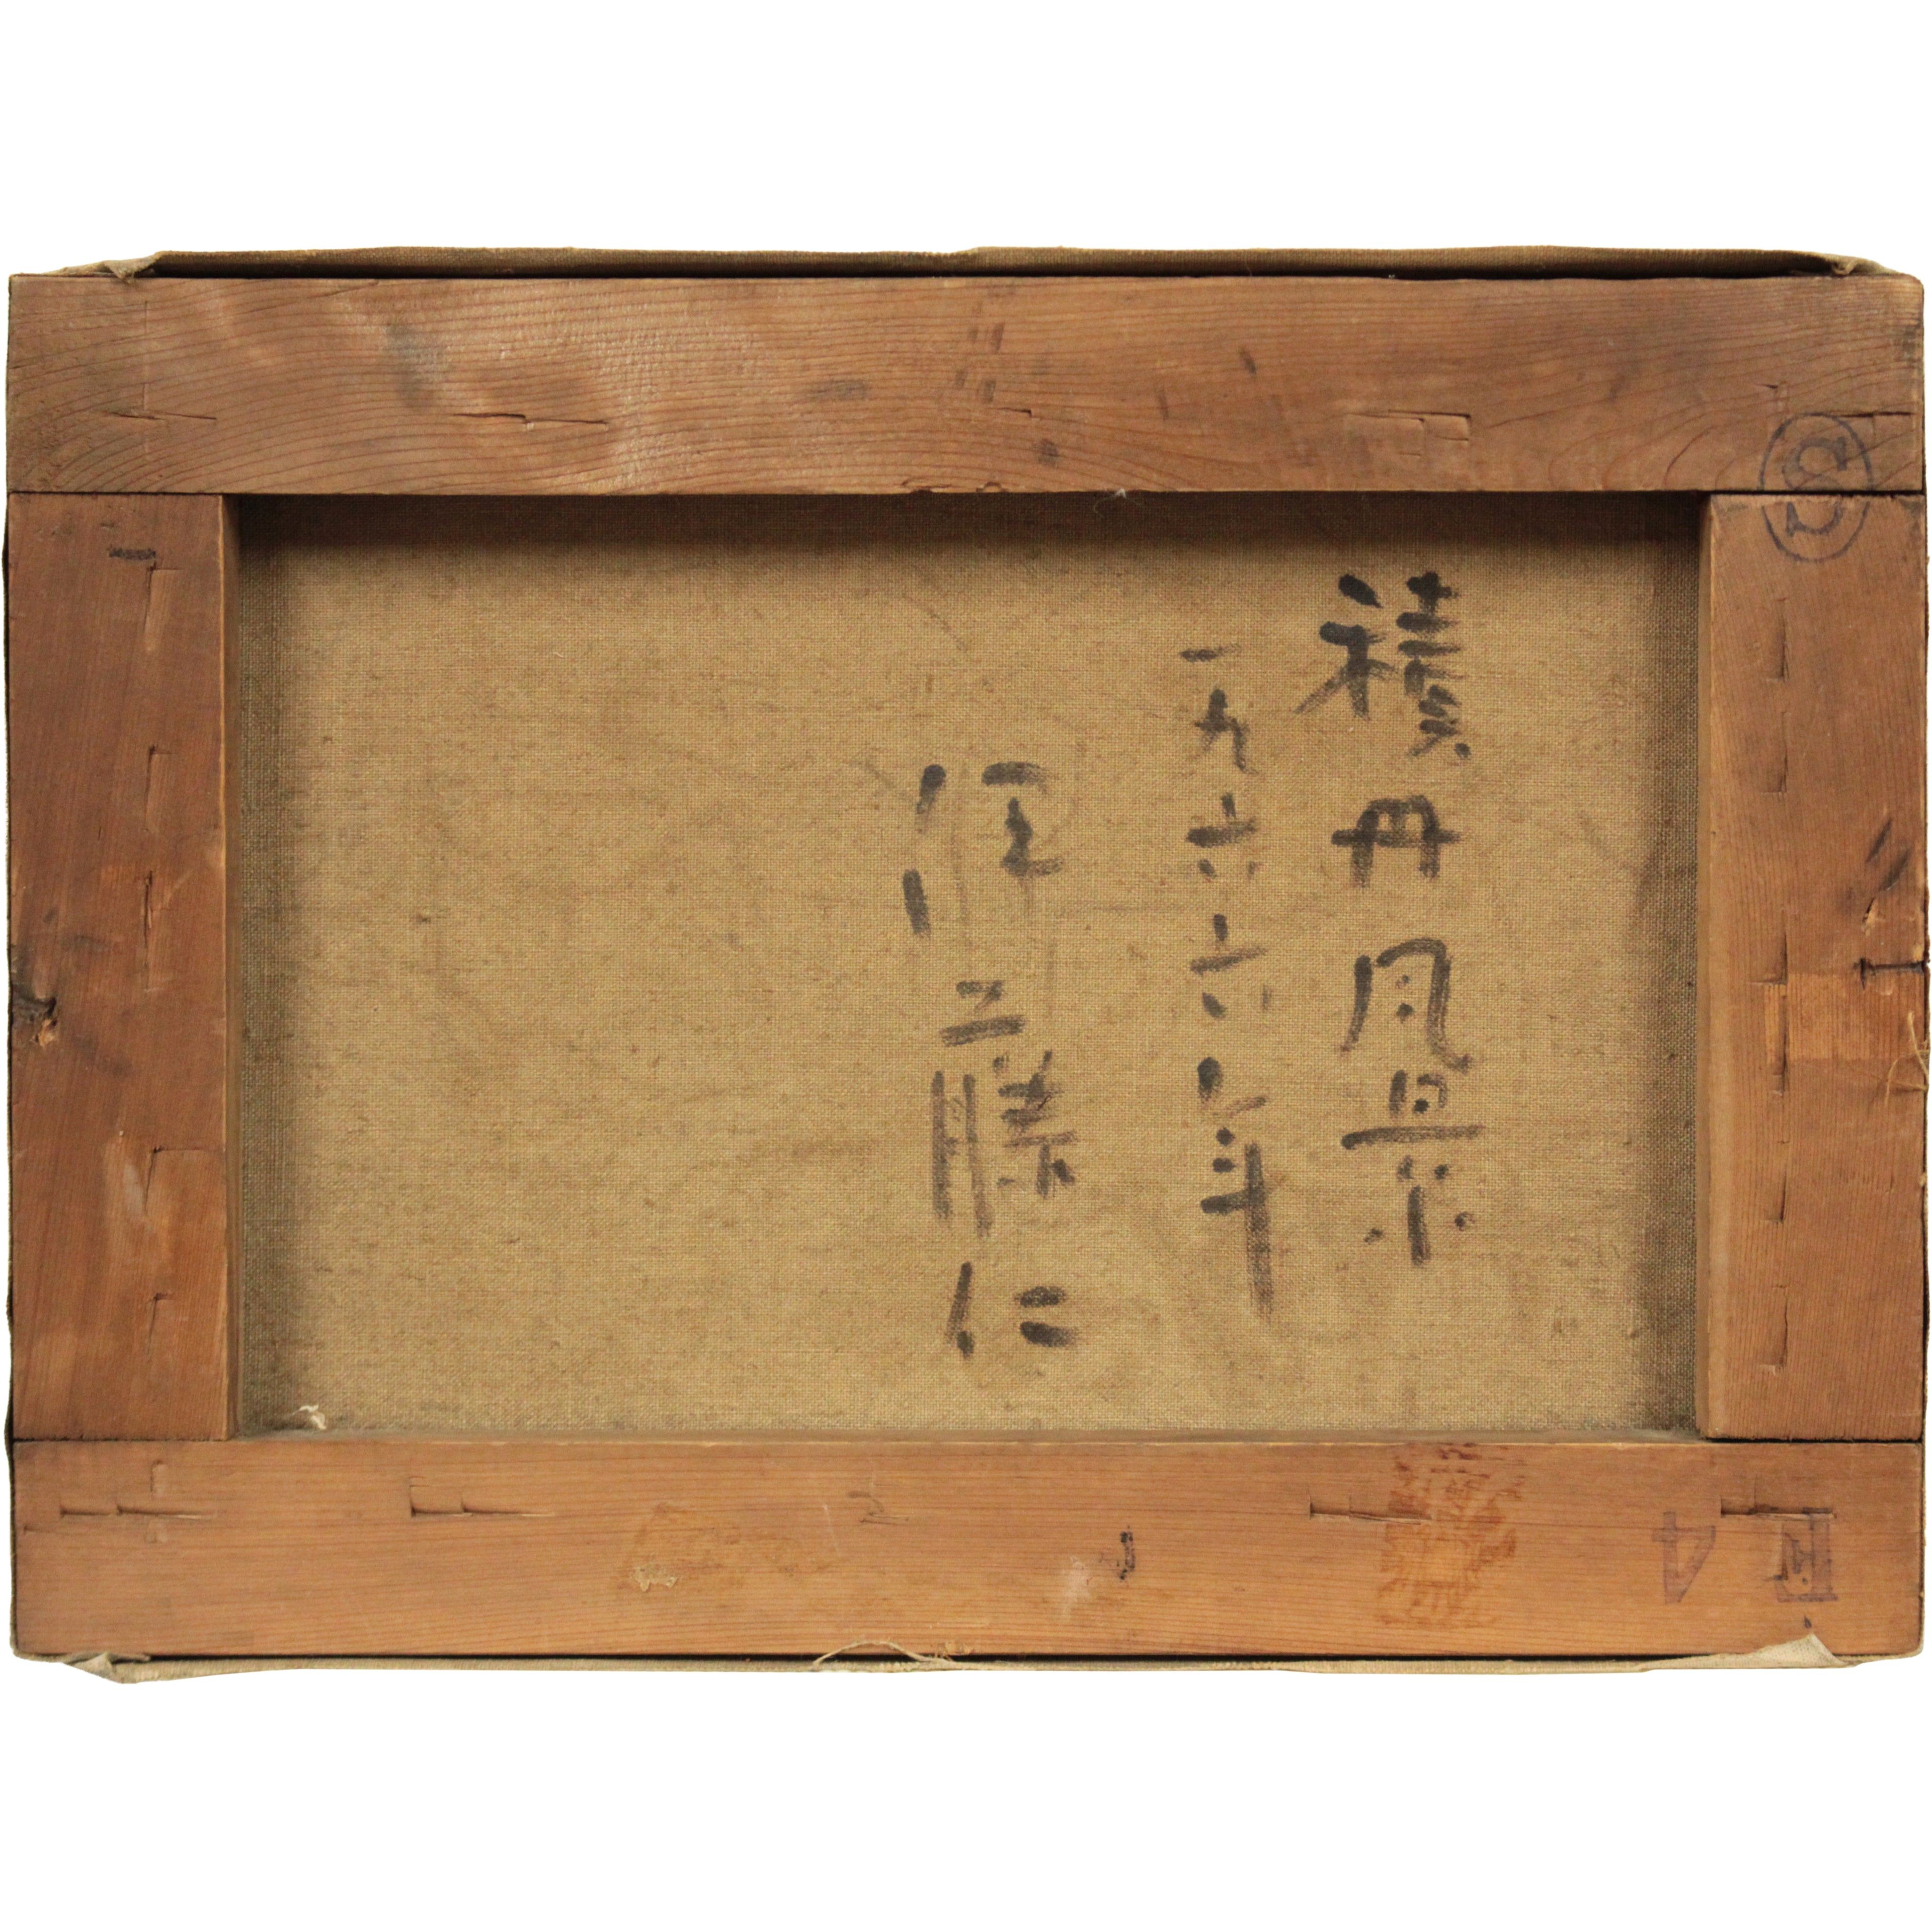 積丹風景
一九六六年
佐藤仁
S
F4